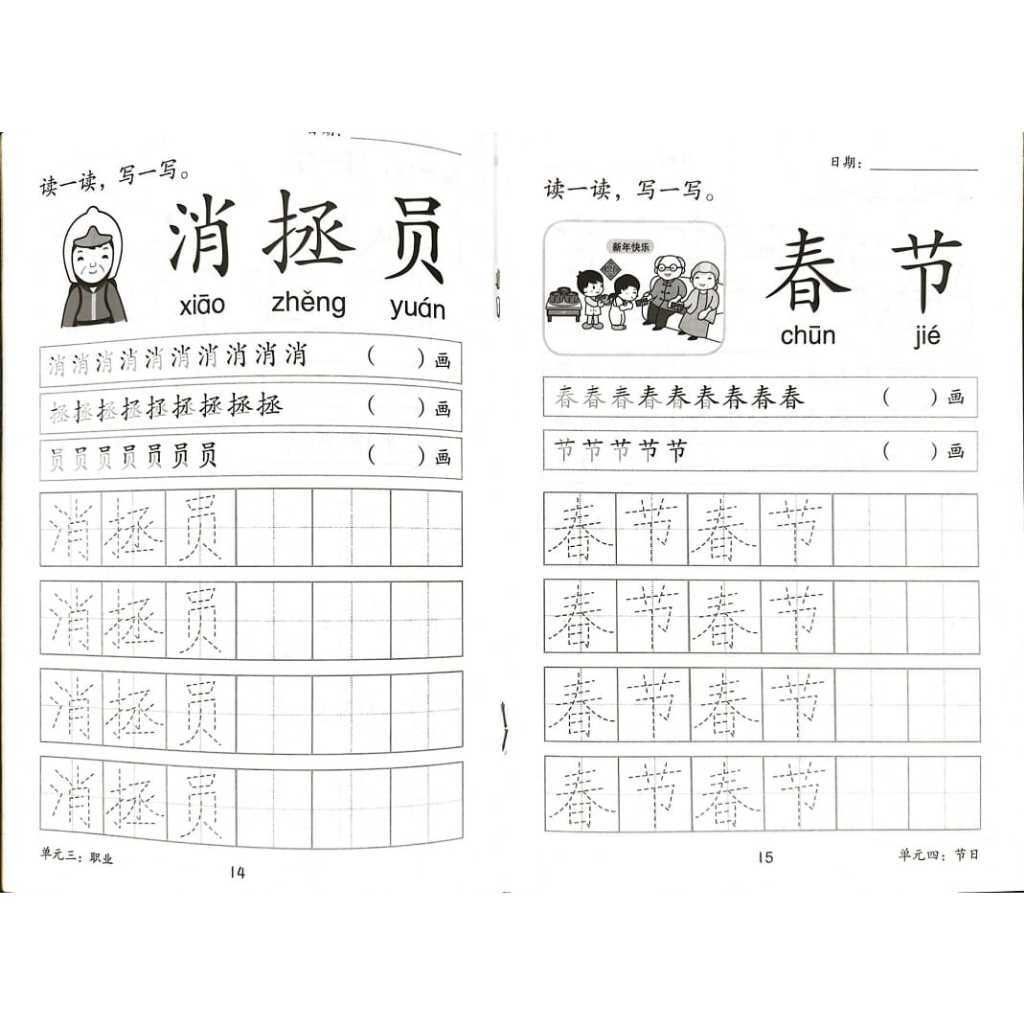 日期：
读一读，写一写。
消拯员
xiāo zhěng yuán
消消消消消消消消消消 （ ）画
拯拯拯拯拯拯拯拯拯 （ ）画
员员员员员员员 （ ）画
消拯员
消拯员
消拯员
消拯员
单元三：职业
14
日期：
读一读，写一写。
新年快乐
春节
chūn jié
春春春春春春春春春 （ ）画
节节节节节 （ ）画
春节春节
春节春节
春节春节
春节春节
15
单元四：节日